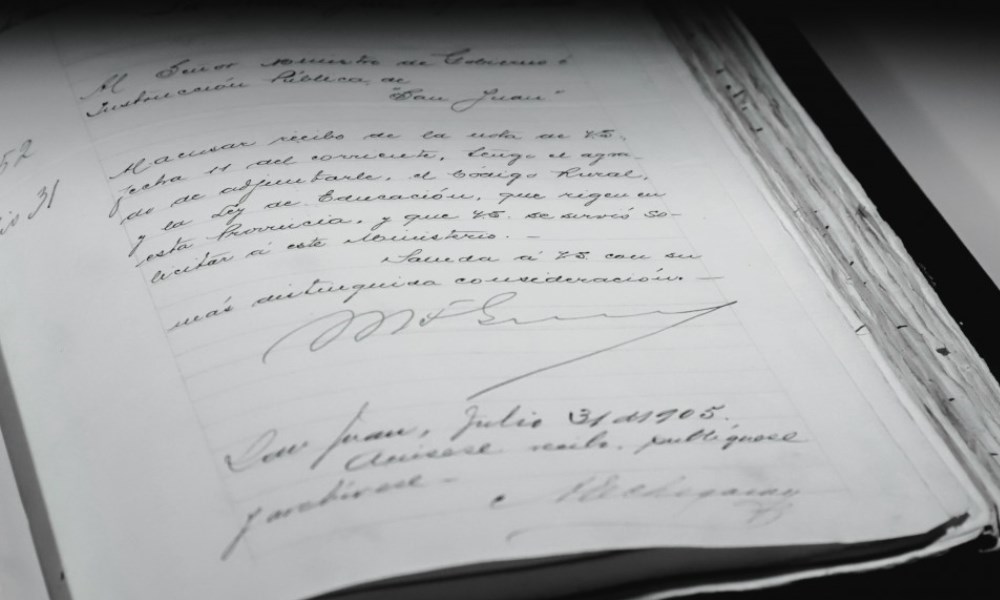 Al Señor Ministro de Gobierno é
Instrucción Pública de
"San Juan"
52
31
Al acusar recibo de la nota de VS.
fecha 11 del corriente, tengo el agra-
do de adjuntarle, el Código Rural,
y la Ley de Educación, que rigen en
esta Provincia, y que VS. se sirvió so-
licitar á este Ministerio. -
Saluda á VS con su
más distinguida consideración. -
San Juan, Julio 31 de 1905.
Avísese recibo, publíquese
y archívese -
Echegaray